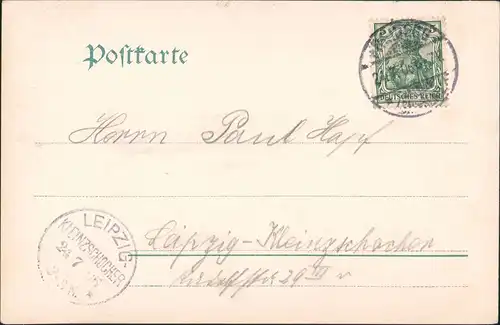 Postkarte
DEUTSCHES REICH
Herrn Paul Hapf
Leipzig-Kleinzschocher
29 III r
LEIPZIG-
KLEINZSCHOCHER
24 7